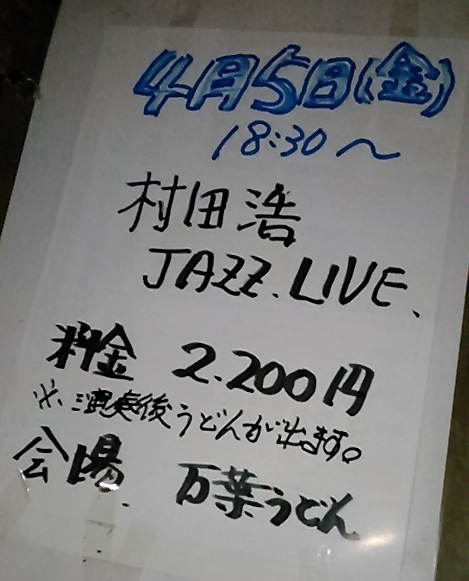 4月5日(金)
18:30〜
村田浩
JAZZ.LIVE.
料金 2.200円
※.演奏後うどんが出ます。
会場. 万葉うどん